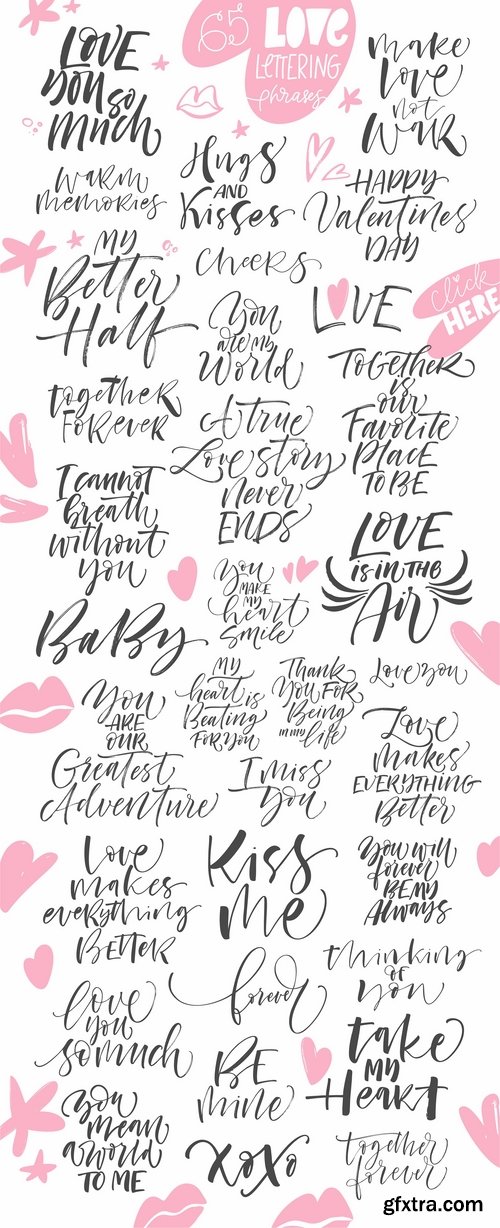 65 LOVE
LETTERING
phrases
LOVE
you so
much
make
love
not
WAR
warm
memories
Hugs
AND
Kisses
HAPPY
Valentines
DAY
MY
Better
Half
cheers
You
are my
World
LOVE
click
HERE
together
FOREVER
TOGETHER
is
our
Favorite
Place
TO BE
A true
Love story
never
ENDS
I cannot
breath
without
you
LOVE
is in the
Air
You
MAKE
MY
heart
smile
BaBy
MY
heart is
Beating
FOR YOU
Thank
YOU FOR
Being
in my
life
Love you
You
ARE
OUR
Greatest
Adventure
I miss
you
Love
makes
EVERYTHING
Better
Love
makes
everything
BETTER
Kiss
me
You will
forever
BE MY
ALWAYS
thinking
OF
you
love
you
so much
forever
BE
mine
take
MY
Heart
you
mean
a world
TO ME
XOXO
together
forever
gfxtra.com